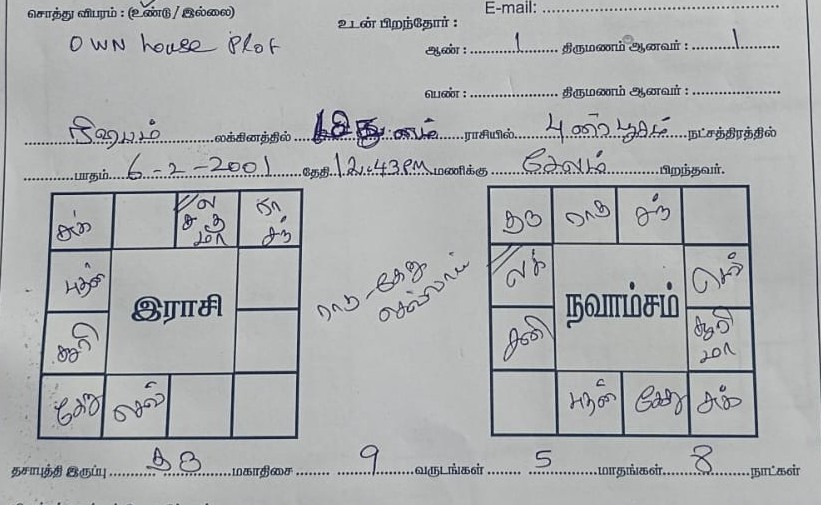 சொத்து விபரம் : (உண்டு / இல்லை)
E-mail:
உடன் பிறந்தோர் :
OWN house Plot
ஆண் : 1 திருமணம் ஆனவர் : 1
பெண் : திருமணம் ஆனவர் :
ரிஷபம் லக்கினத்தில் மிதுனம் ராசியில் புனர்பூசம் நட்சத்திரத்தில்
பாதம் 6-2-2001 தேதி 12.43PM மணிக்கு சேலம் பிறந்தவர்.
சுக் ல ரா குரு ராகு சந்
ச கு மா சந்
புதன் லக் செவ்
இராசி ராகு - கேது செவ்வாய் நவாம்சம்
சூரி சனி சூரி மா
கேது செவ் புதன் கேது சுக்
தசாபுத்தி இருப்பு குரு மகாதிசை 9 வருடங்கள் 5 மாதங்கள் 8 நாட்கள்